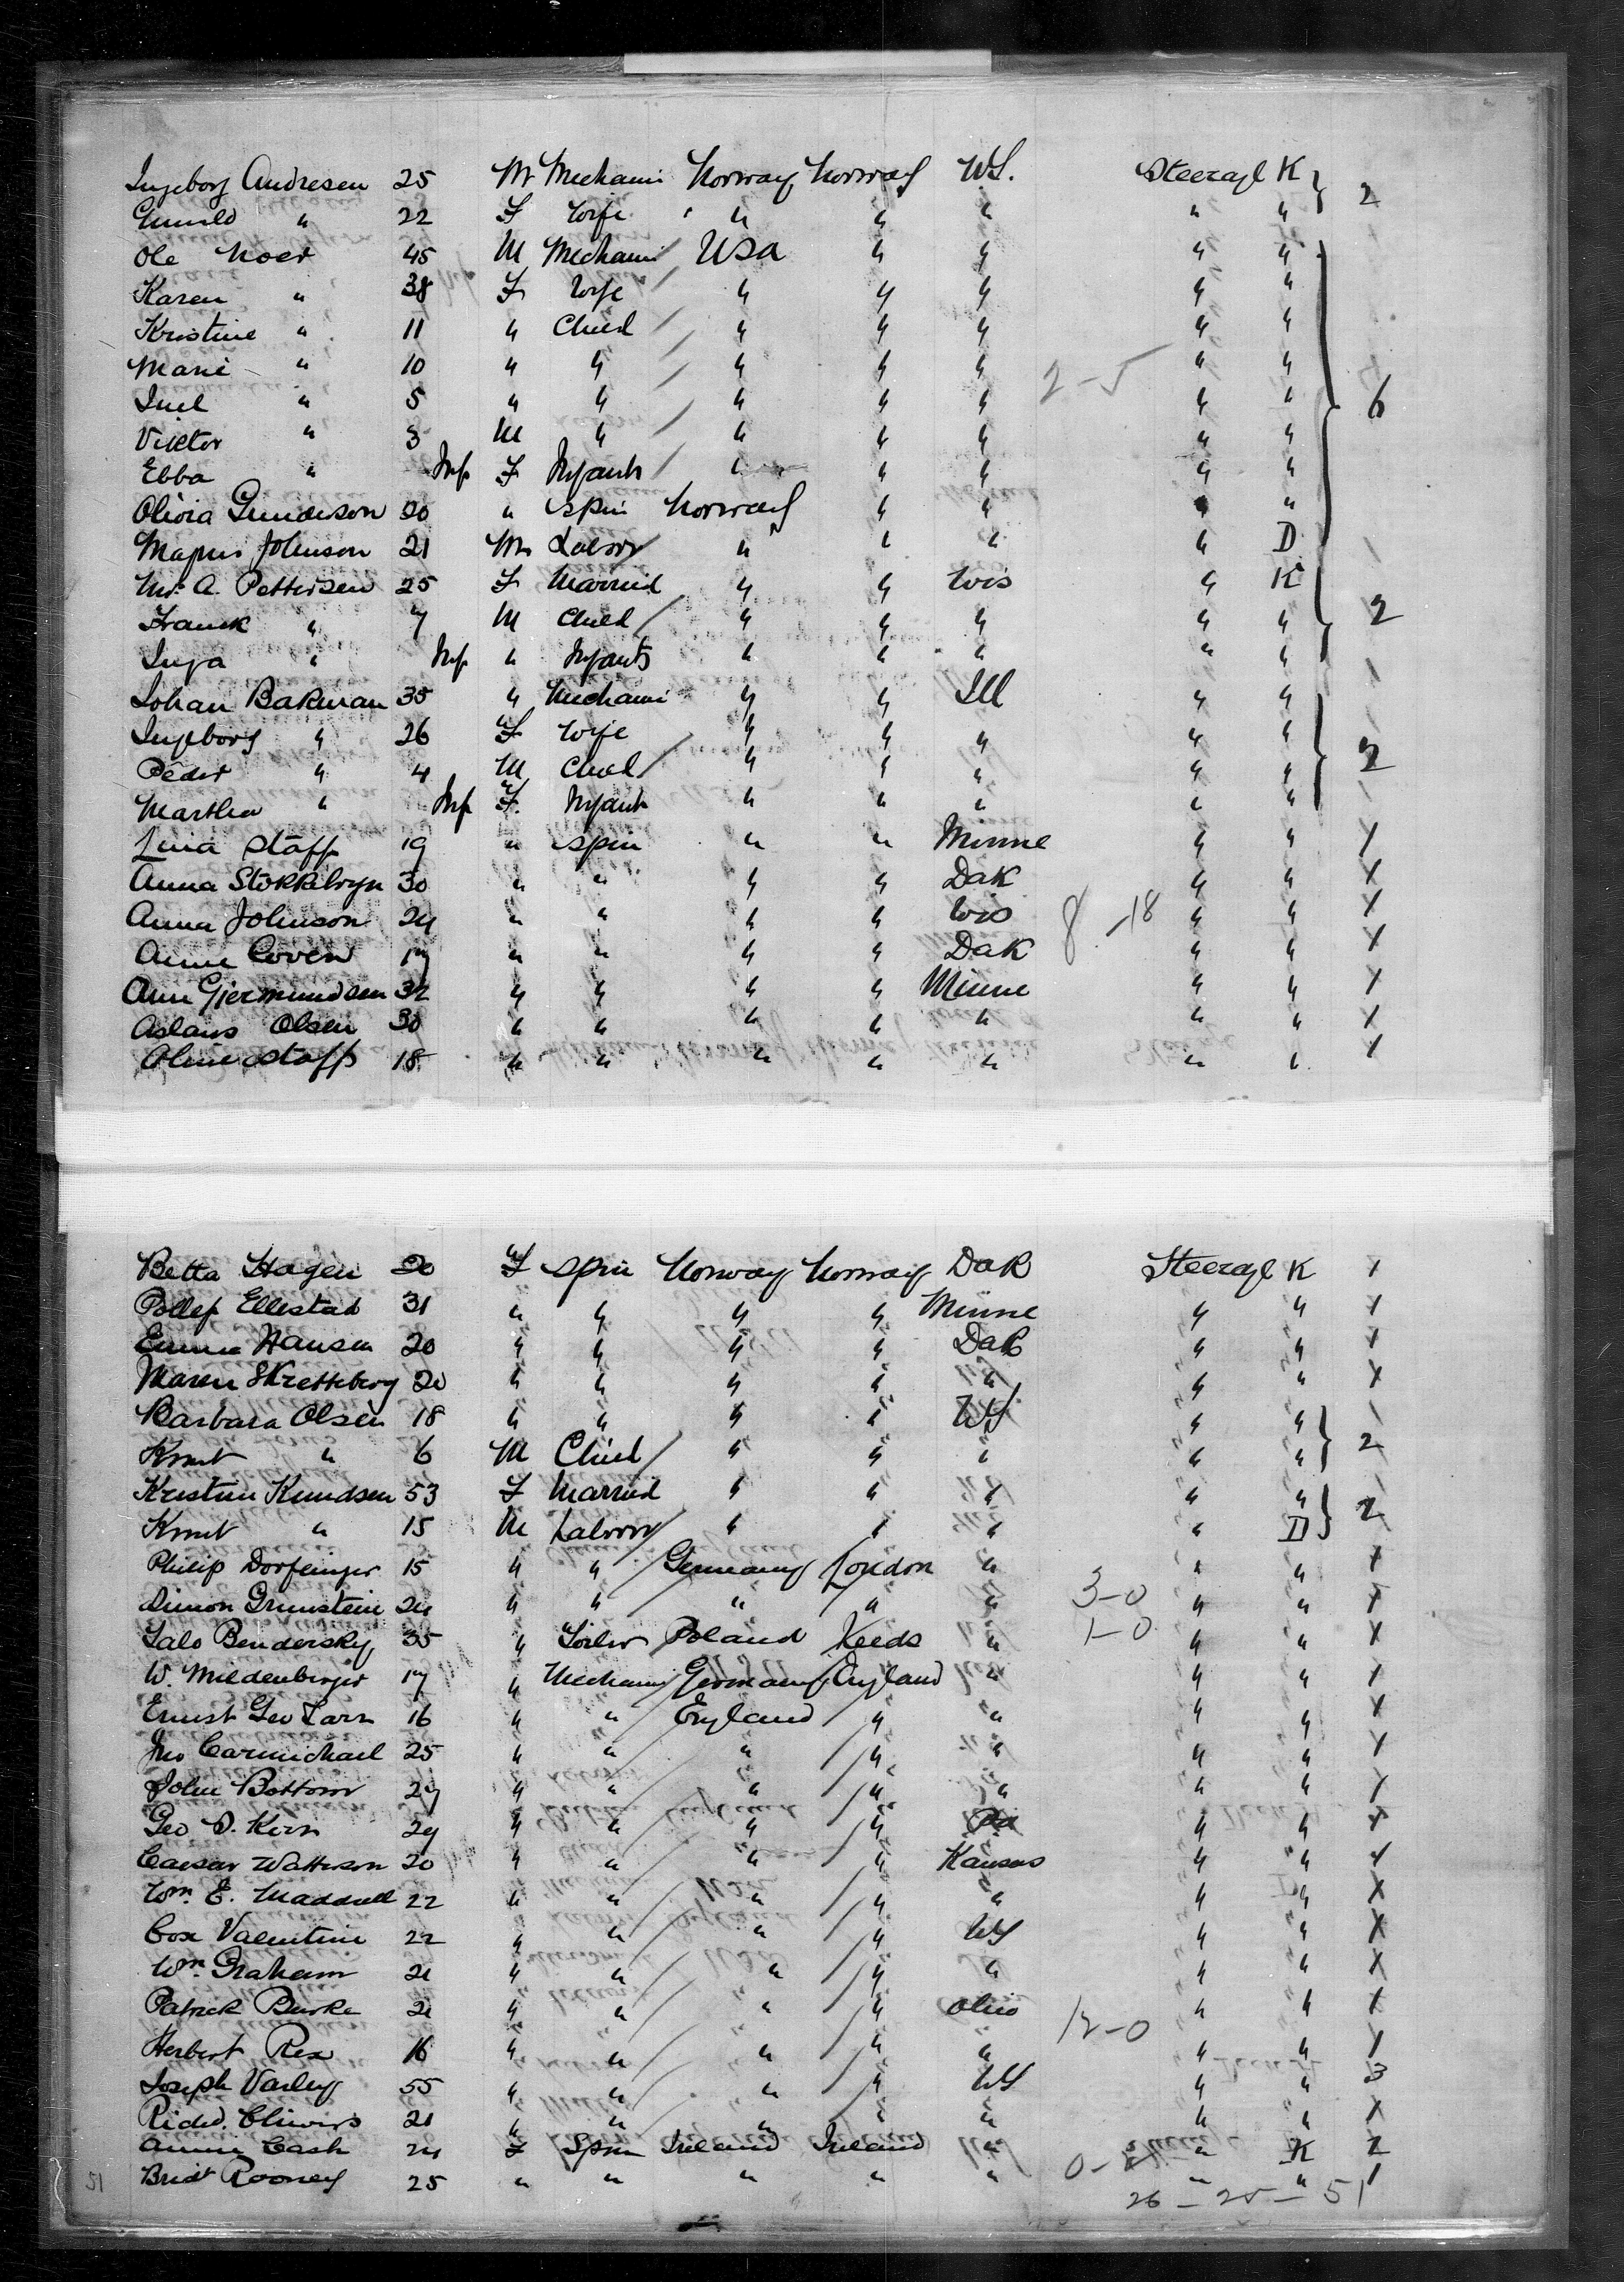 Ingeborg Andresen 25 M Mechani Norway Norway NY. Steerage K 2
Gunild " 22 F Wife " " " " "
Ole Noer 45 M Mechani USA " " " "
Karen " 38 F Wife " " " " "
Kristine " 11 " Child " " " " "
Marie " 10 " " " " " 2-5 " "
" 5 " " " " " " " 6
Viktor " 3 M " " " " " "
Ebba " Inf F Infants " " " " "
Olivia Gunderson 20 " Spin Norway " " " "
Magnus Johnson 21 M Labor " " " " D
Mrs A. Pettersen 25 F Married " " Wis " K
Franck " 7 M Child " " " " " 2
Inga " Inf " Infants " " " " "
Johan Bakman 35 " Mechani " " Ill " "
Ingeborg " 26 F Wife " " " " "
Peder " 4 M Child " " " " " 2
Marthea " Inf F. Infant " " " " "
Lina Staff 19 " Spin " " Minne " " 1
Anna 30 " " " " Dak " " X
Anna Johnson 24 " " " " Wis 8-18 " " X
Anne 17 " " " " Dak " " X
Ann Gjermundsen 32 " " " " Minne " " X
Aslaus Olsen 30 " " " " " " " X
Oline Staff 18 " " " " " " " X
Betta Hagen 20 F Spin Norway Norway Dak Steerage K X
Ellestad 31 " " " " Minne " " X
Emma Hansen 20 " " " " Dak " " X
Maren Skretteberg 20 " " " " " " " X
Barbara Olsen 18 " " " " NY " "
Knut " 6 M Child " " " " " 2
Kristine Knudsen 53 F Married " " " " "
Knut " 15 M Labor " " " " D 2
Philip Dorflinger 15 " " Germany London " " " X
Simon Grunstein 24 " " " " " 3-0 " " X
Bendersky 35 " Poland Leeds " 1-0 " " X
W. Mildenberger 17 " Mechani Germany England " " " X
Ernst Geo 16 " " England " " " " X
Jno Carmichael 25 " " " " " " " X
John Bottom 27 " " " " " " " X
Geo D. Kirn 27 " " " " Pa " " X
Caesar Watterson 20 " " " " Kansas " " X
Wm. E. Maddrell 22 " " " " " " " X
Cox Valentine 22 " " " " NY " " X
Wm. Graham 21 " " " " " " " X
Patrick Burke 21 " " " " Ohio " " X
Herbert Rex 16 " " " " " 12-0 " " 1
Joseph Varley 55 " " " " NY " " 3
Richd. 21 " " " " " " " X
Annie Cash 24 F Spin Ireland Ireland " " K 2
Bridt Rooney 25 " " " " " " " 1
51 26-25-51